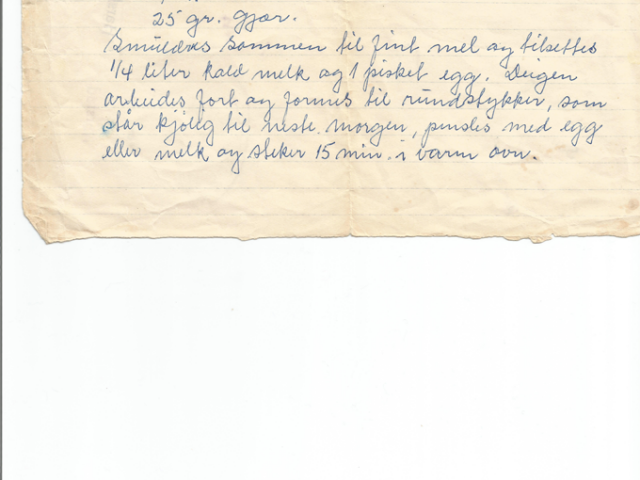 25 gr. gjær.
Smuldres sammen til fint mel og tilsettes
1/4 liter kald melk og 1 pisket egg. Deigen
arbeides fort og formes til rundstykker, som
står kjølig til neste morgen, pensles med egg
eller melk og steker 15 min. i varm ovn.